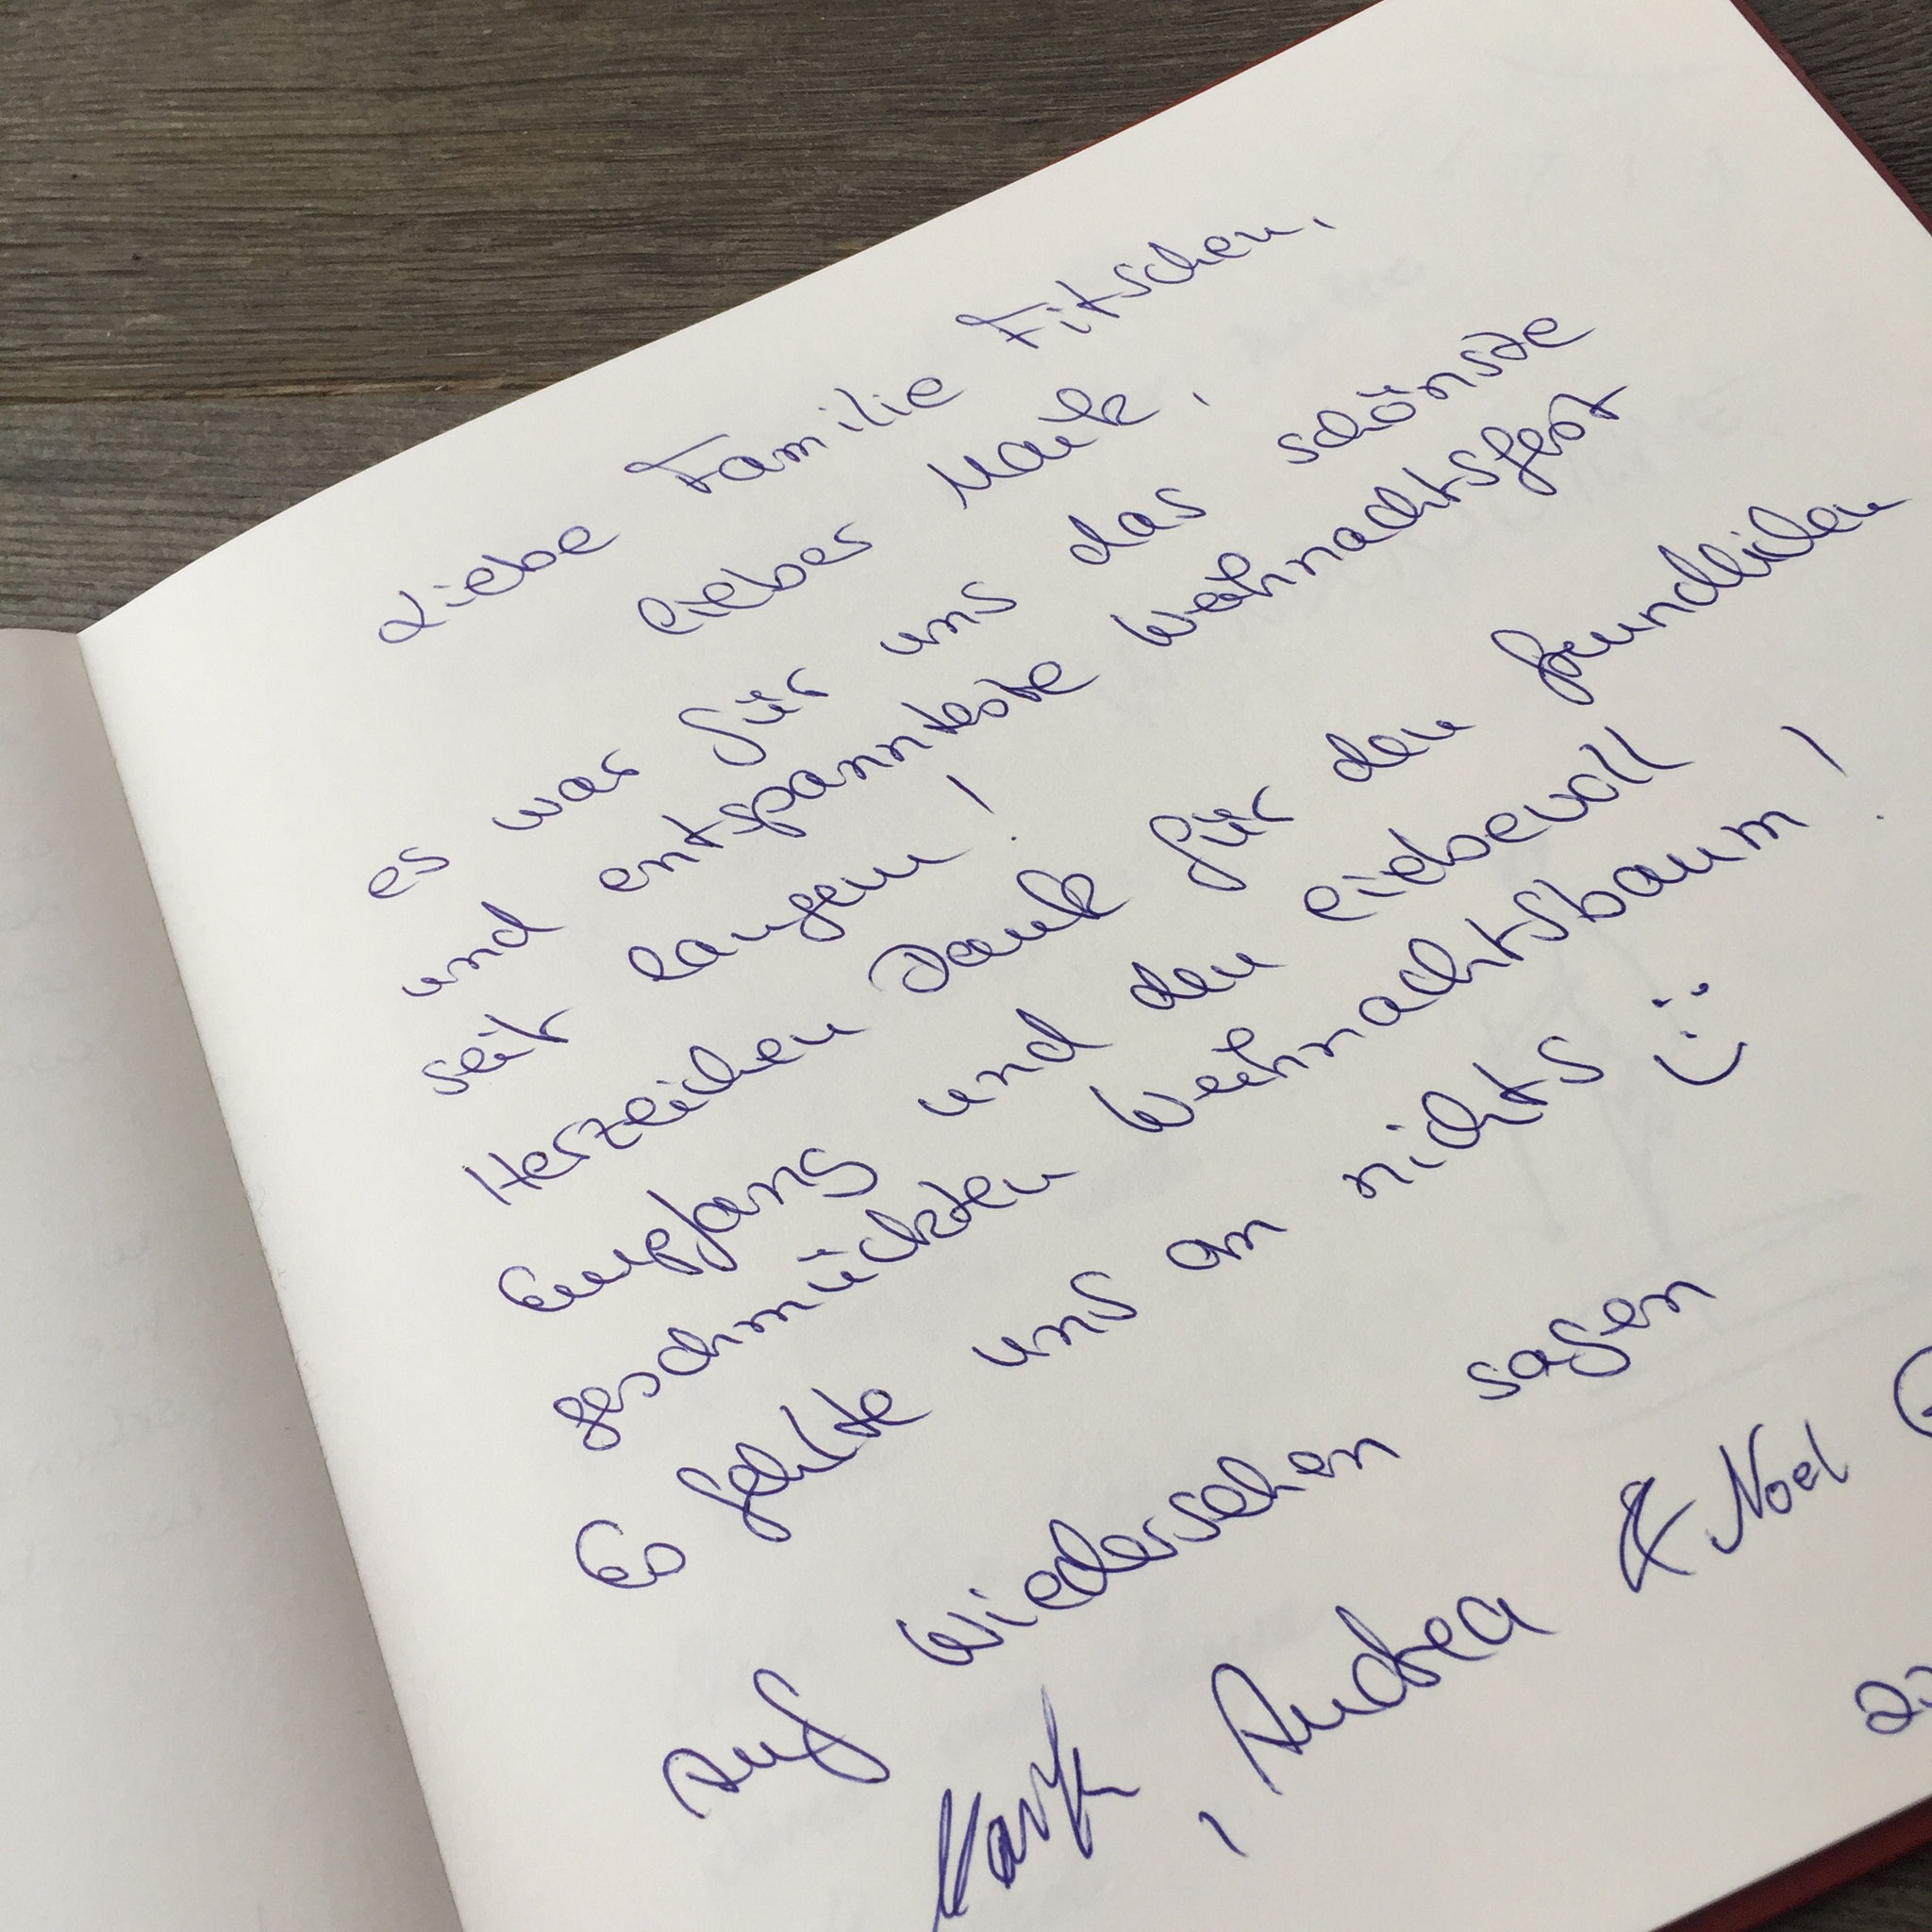 Liebe Familie Fitschen,
lieber Maik,
es war für uns das schönste
und entspannteste Weihnachtsfest
seit langem!
Herzlichen Dank für den freundlichen
Empfang und den liebevoll
geschmückten Weihnachtsbaum!
Es fehlte uns an nichts :)
Auf Wiedersehen sagen
Maik, Andrea & Noel